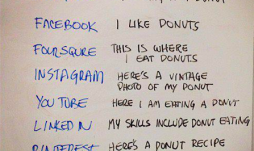 FACEBOOK I LIKE DONUTS
FOURSQURE THIS IS WHERE
I EAT DONUTS
INSTAGRAM HERE'S A VINTAGE
PHOTO OF MY DONUT
YOU TUBE HERE I AM EATING A DONUT
LINKED IN MY SKILLS INCLUDE DONUT EATING
PINTEREST HERE'S A DONUT RECIPE